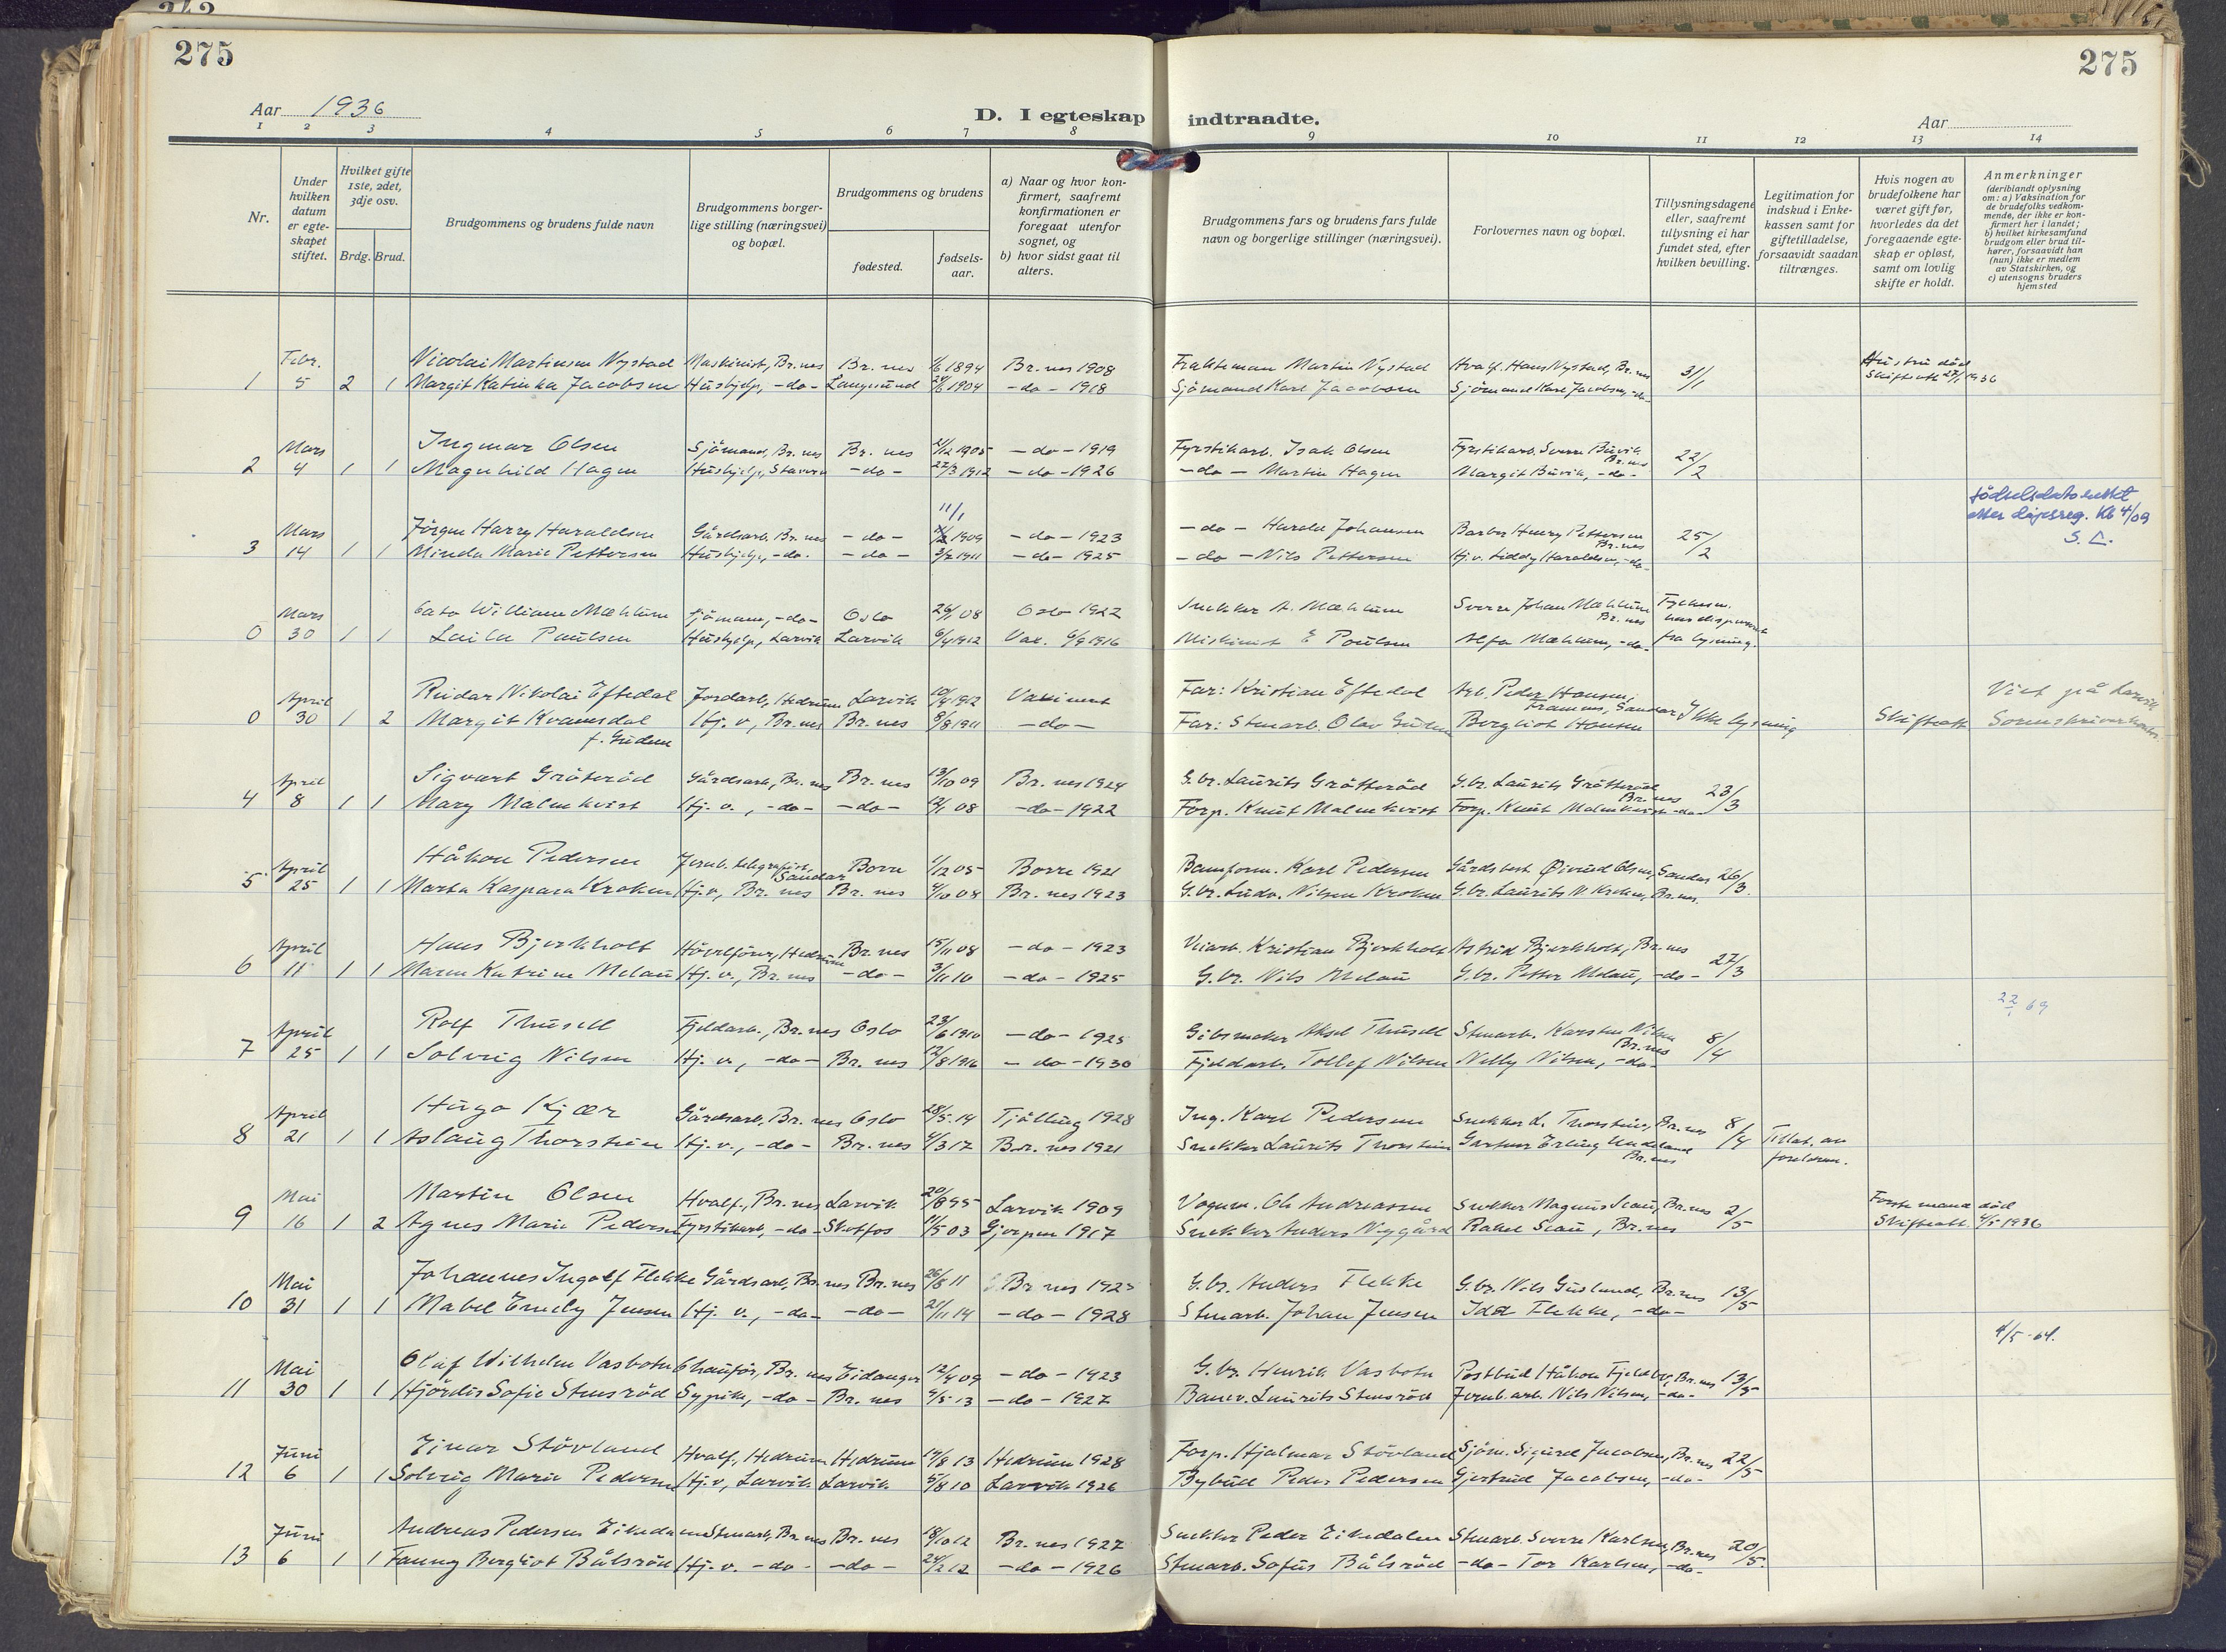 275
275
Aar 1936
D. I egteskap indtraadte.
Aar
1 2 3 4 5 6 7 8 9 10 11 12 13 14
Nr.
Under hvilken datum er egteskapet stiftet.
Hvilket gifte 1ste, 2det, 3dje osv.
Brdg. Brud.
Brudgommens og brudens fulde navn
Brudgommens borgerlige stilling (næringsvei) og bopæl.
Brudgommens og brudens
fødested.
fødselsaar.
a) Naar og hvor konfirmert, saafremt konfirmationen er foregaat utenfor sognet, og
b) hvor sidst gaat til alters.
Brudgommens fars og brudens fars fulde navn og borgerlige stillinger (næringsvei).
Forlovernes navn og bopæl.
Tillysningsdagene eller, saafremt tillysning ei har fundet sted, efter hvilken bevilling.
Legitimation for indskud i Enkekassen samt for giftetilladelse, forsaavidt saadan tiltrænges.
Hvis nogen av brudefolkene har været gift før, hvorledes da det foregaaende egteskap er opløst, samt om lovlig skifte er holdt.
Anmerkninger
(deriblandt oplysning om: a) Vaksination for de brudefolks vedkommende, der ikke er konfirmert her i landet; b) hvilket kirkesamfund brudgom eller brud tilhører, forsaavidt han (hun) ikke er medlem av Statskirken, og c) utensogns bruders hjemsted
Febr. Nicolai Martinsen Nystad Maskinist, Br.nes Br. nes 1894 Br. nes 1908 Martin Nystad Hvalf. Hans Nystad, Br. nes 31/1 Hustru död
1 5 2 1 Margit Katinka Jacobsen Hushjelp, -do- Langesund 1904 -do- 1918 Sjömand Karl Jacobsen Sjömand Karl Jacobsen, -do- Skifteatt. 27/1 1936
Mars Ingmar Olsen Sjömand, Br. nes Br. nes 1905 -do- 1919 Fyrstikarb. Isak Olsen Fyrstikarb. Sverre Buvik Br. nes 22/2
2 4 1 1 Magnhild Hagen Hushjelp, Stavern -do- 22/3 1912 -do- 1926 -do- Martin Hagen Margit Buvik, -do-
11/1 födselsdato rettet
Mars Jörgen Harry Haraldsen Gårdsarb. Br. nes -do- 1909 -do- 1923 -do- Harald Johansen Barber Henry Pettersen Br. nes 25/2 etter dåpsreg. Kb 4/09
3 14 1 1 Minda Marie Pettersen Hushjelp, -do- -do- 1911 -do- 1925 -do- Nils Pettersen Hj.v. Haraldsen, -do- S. L.
Mars Cato William Mæhlum Sjömann, -do- Oslo 26/1 08 Oslo 1922 Snekker A. Mæhlum Sverre Johan Mæhlum Br. nes
0 30 1 1 Laila Paulsen Hushjelp, Larvik Larvik 6/4 1912 Vax. 6/9 1916 E Poulsen Mæhlum, -do- fra lysning.
April Reidar Nikolai Eftedal Jordarb, Hedrum Larvik 10/4 1912 Vaksinert Far: Kristian Eftedal Arb. Peder Hansen, Framnes, Sandar Ikke lysning Viet på Larvik
0 30 1 2 Margit Kvamsdal Hj. v, Br. nes Br. nes 8/8 1911 -do- Far: Stenarb. Olav Bergliot Hansen Skifteatt. Sorenskriverkontor.
April Sigvart Gröteröd Gårdsarb, Br. nes Br. nes 13/10 09 Br. nes 1924 G. br. Laurits Grötteröd G. br. Laurits Grötteröd Br. nes 23/3
4 8 1 1 Mary Malmkvist Hj. v., -do- -do- 08 -do- 1922 Forp. Knut Malmkvist Forp. Knut Malmkvist -do-
April Håkon Pedersen Jernb. telegrafist, Sandar Borre 1/12 05 Borre 1921 Karl Pedersen Gårdsbest. Øivind Olsen, Sandar 26/3.
5 25 1 1 Marta Kaspara Kroken Hj.v, Br. nes Br. nes 9/10 08 Br. nes 1923 G. br. Ludv. Nilsen Kroken G. br. Laurits N. Kroken, Br. nes.
April Hans Bjerkholt Hedrum Br. nes 15/11 08 -do- 1923 Veiarb. Kristian Bjerkholt Astrid Bjerkholt, Br. nes 27/3
6 11 1 1 Maren Katrine Melau Hj. v., Br. nes -do- 3/11 10 -do- 1925 G. br. Nils Melau G. br. Petter Melau, -do-
April Rolf Thusell Fjeldarb., Br. nes Oslo 23/6 1910 -do- 1925 Gibsmaker Aksel Thusell Stenarb. Karsten Nilsen Br. nes 8/4
7 25 1 1 Solveig Nilsen Hj. v., -do- Br. nes 12/8 1916 -do- 1930 Fjeldarb. Tollef Nilsen Nelly Nilsen, -do-
April Hugo Kjær Gårdsarb, Br. nes Oslo 28/5. 14 Tjölling 1928 Ing. Karl Pedersen Snekker L. Thorstein, Br. nes 8/4 Tillat. av foreldrene.
8 21 1 1 Aslaug Thorstein Hj. v., -do- Br. nes 4/3 17 Br. nes 1921 Snekker Laurits Thorstein Gartner Erling Br. nes
Mai Martin Olsen Hvalf., Br. nes Larvik 20/8 95 Larvik 1909 Vognm. Ole Andreassen Snekker Magnus Scau, Br. nes 2/5 Förste mand död
9 16 1 2 Agnes Marie Pedersen Fyrstikarb, -do- Skotfos 11/5 03 Gjerpen 1917 Snekker Anders Nygård Rakel Scau, Br. nes Skifteatt. 4/5 1936
Mai Johannes Ingolf Flekke Gårdsarb, Br. nes Br. nes 26/8 11 Br. nes 1925 G. br. Anders Flekke G. br. Nils Guslund, Br. nes 13/5
10 31 1 1 Mabel Emely Jensen Hj. v., -do- -do- 21/11 14 -do- 1928 Stenarb. Johan Jensen Ida Flekke, -do-
4/5-64.
Mai Olaf Wilhelm Vasbotn Chaufør, Br. nes Eidanger 12/4 09 -do- 1923 G. br. Henrik Vasbotn Postbud Håkon Br. nes 13/5
11 30 1 1 Hjördis Sofie Stensröd Sypike, -do- Br. nes 4/5 13 -do- 1927 Banev. Laurits Stensröd Jernb. arb. Nils Nilsen, -do-
Juni Einar Stövland Hvalf., Hedrum Hedrum 19/8 13 Hedrum 1928 Forp. Hjalmar Stövland Sjöm. Sigurd Jacobsen, Br. nes 22/5
12 6 1 1 Solveig Marie Pedersen Hj. v, Larvik Larvik 5/8 10 Larvik 1926 Bybud Peder Pedersen Gjertrud Jacobsen, -do-
Juni Andreas Pedersen Eikedalen Stenarb, Br. nes Br. nes 18/10 12 Br. nes 1927 Snekker Peder Eikedalen Stenarb. Sverre Karlsen, Br. nes 20/5.
13 6 1 1 Fanny Bergliot Bålsröd Hj. v. -do- -do- 24/2 12 -do- 1926 Stenarb. Sofus Bålsröd -do- Tor Karlsen, -do-